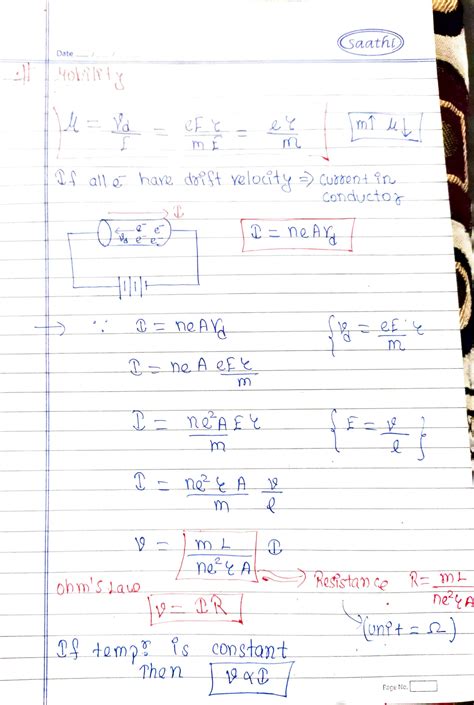 Saathi
Date
Mobility
μ = Vd/E = eEτ/mE = eτ/m   m↑ μ↓
If all e⁻ have drift velocity ⇒ Current in
conductor
I
e⁻ e⁻
Vd e⁻ e⁻
I = neAVd
→ ∵ I = neAVd   {Vd = eEτ/m
I = neA eEτ/m
I = ne²AEτ/m   {E = V/l}
I = ne²τA/m V/l
V = [mL/ne²τA] I
Ohm's Law   → Resistance R = mL/ne²τA
V = IR   (unit = Ω)
If tempr is constant
Then V ∝ I
Page No.